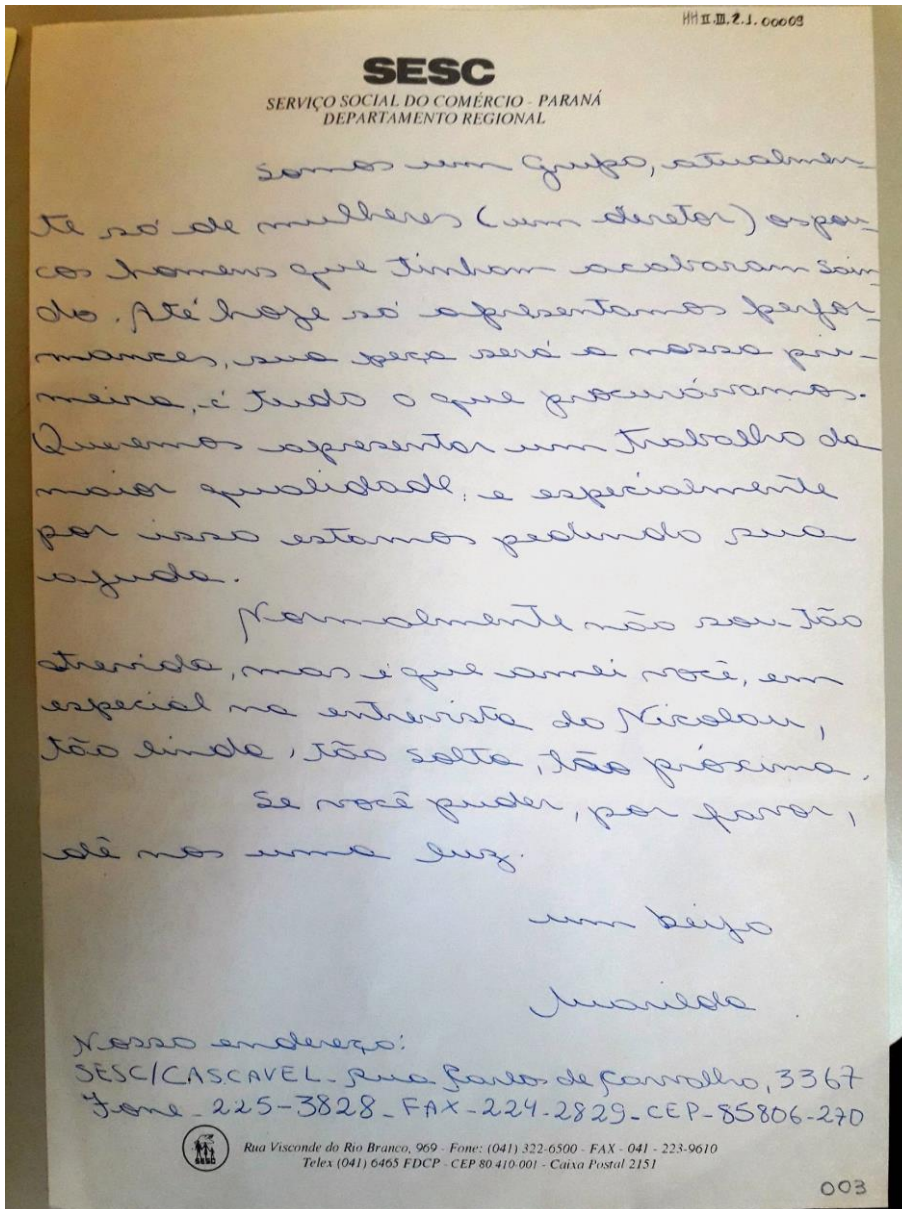 HH II.III.2.1.00009
SESC
SERVIÇO SOCIAL DO COMÉRCIO - PARANÁ
DEPARTAMENTO REGIONAL
Somos um Grupo, atualmen-
te só de mulheres (um diretor) os pou-
cos homens que tinham acabaram sain
do. Até hoje só apresentamos perfor-
mances, sua peça será a nossa pri-
meira, é tudo o que procurávamos.
Queremos apresentar um trabalho da
maior qualidade, e especialmente
por isso estamos pedindo sua
ajuda.
Normalmente não sou tão
atrevida, mas é que amei você, em
especial na entrevista do Nicolau,
tão linda, tão solta, tão próxima.
Se você puder, por favor,
dê nos uma luz.
um beijo
Marilda
Nosso endereço:
SESC/CASCAVEL - Rua Carlos de Carvalho, 3367
Fone - 225-3828 - FAX - 224-2829 - CEP - 85806-270
SESC
Rua Visconde do Rio Branco, 969 - Fone: (041) 322-6500 - FAX - 041 - 223-9610
Telex (041) 6465 FDCP - CEP 80 410-001 - Caixa Postal 2151
003